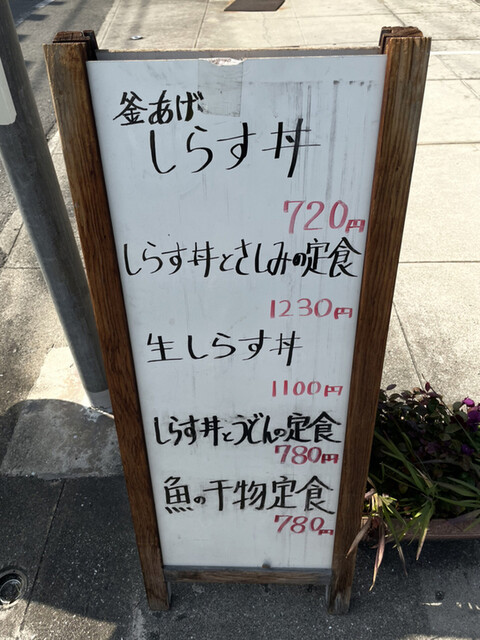 釜あげ
しらす丼
720円
しらす丼とさしみの定食
1230円
生しらす丼
1100円
しらす丼とうどんの定食
780円
魚の干物定食
780円